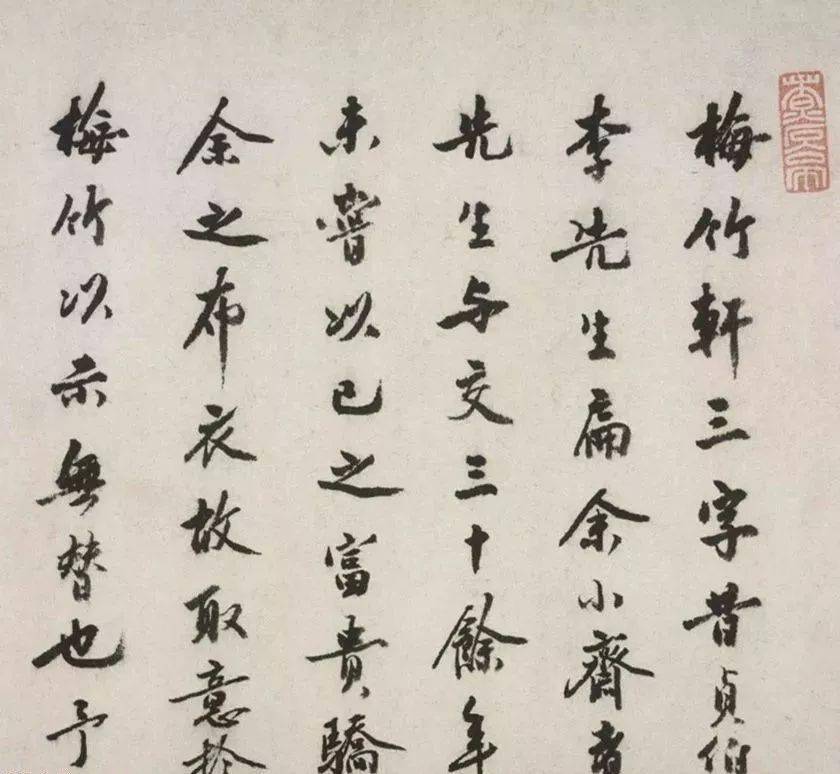 梅竹軒三字昔貞伯
李先生扁余小齋者
先生与交三十餘年
未嘗以己之富貴驕
余之布衣故取意於
梅竹以示無替也予